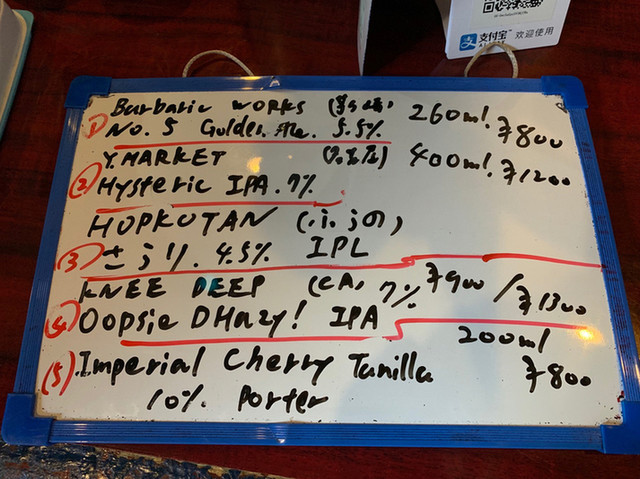 支付宝 欢迎使用
① Barbaric works ( 260ml. ¥800
No. 5 Golden Ale. 5.5%
Y.MARKET ( 400ml. ¥1200
② Hysteric IPA. 7%
HOPKOTAN (
③ 4.5% IPL
KNEE DEEP (CA, 7% ¥900 / ¥1300
④ Oopsie DHazy! IPA
200ml
⑤ Imperial Cherry Vanilla ¥800
10% Porter